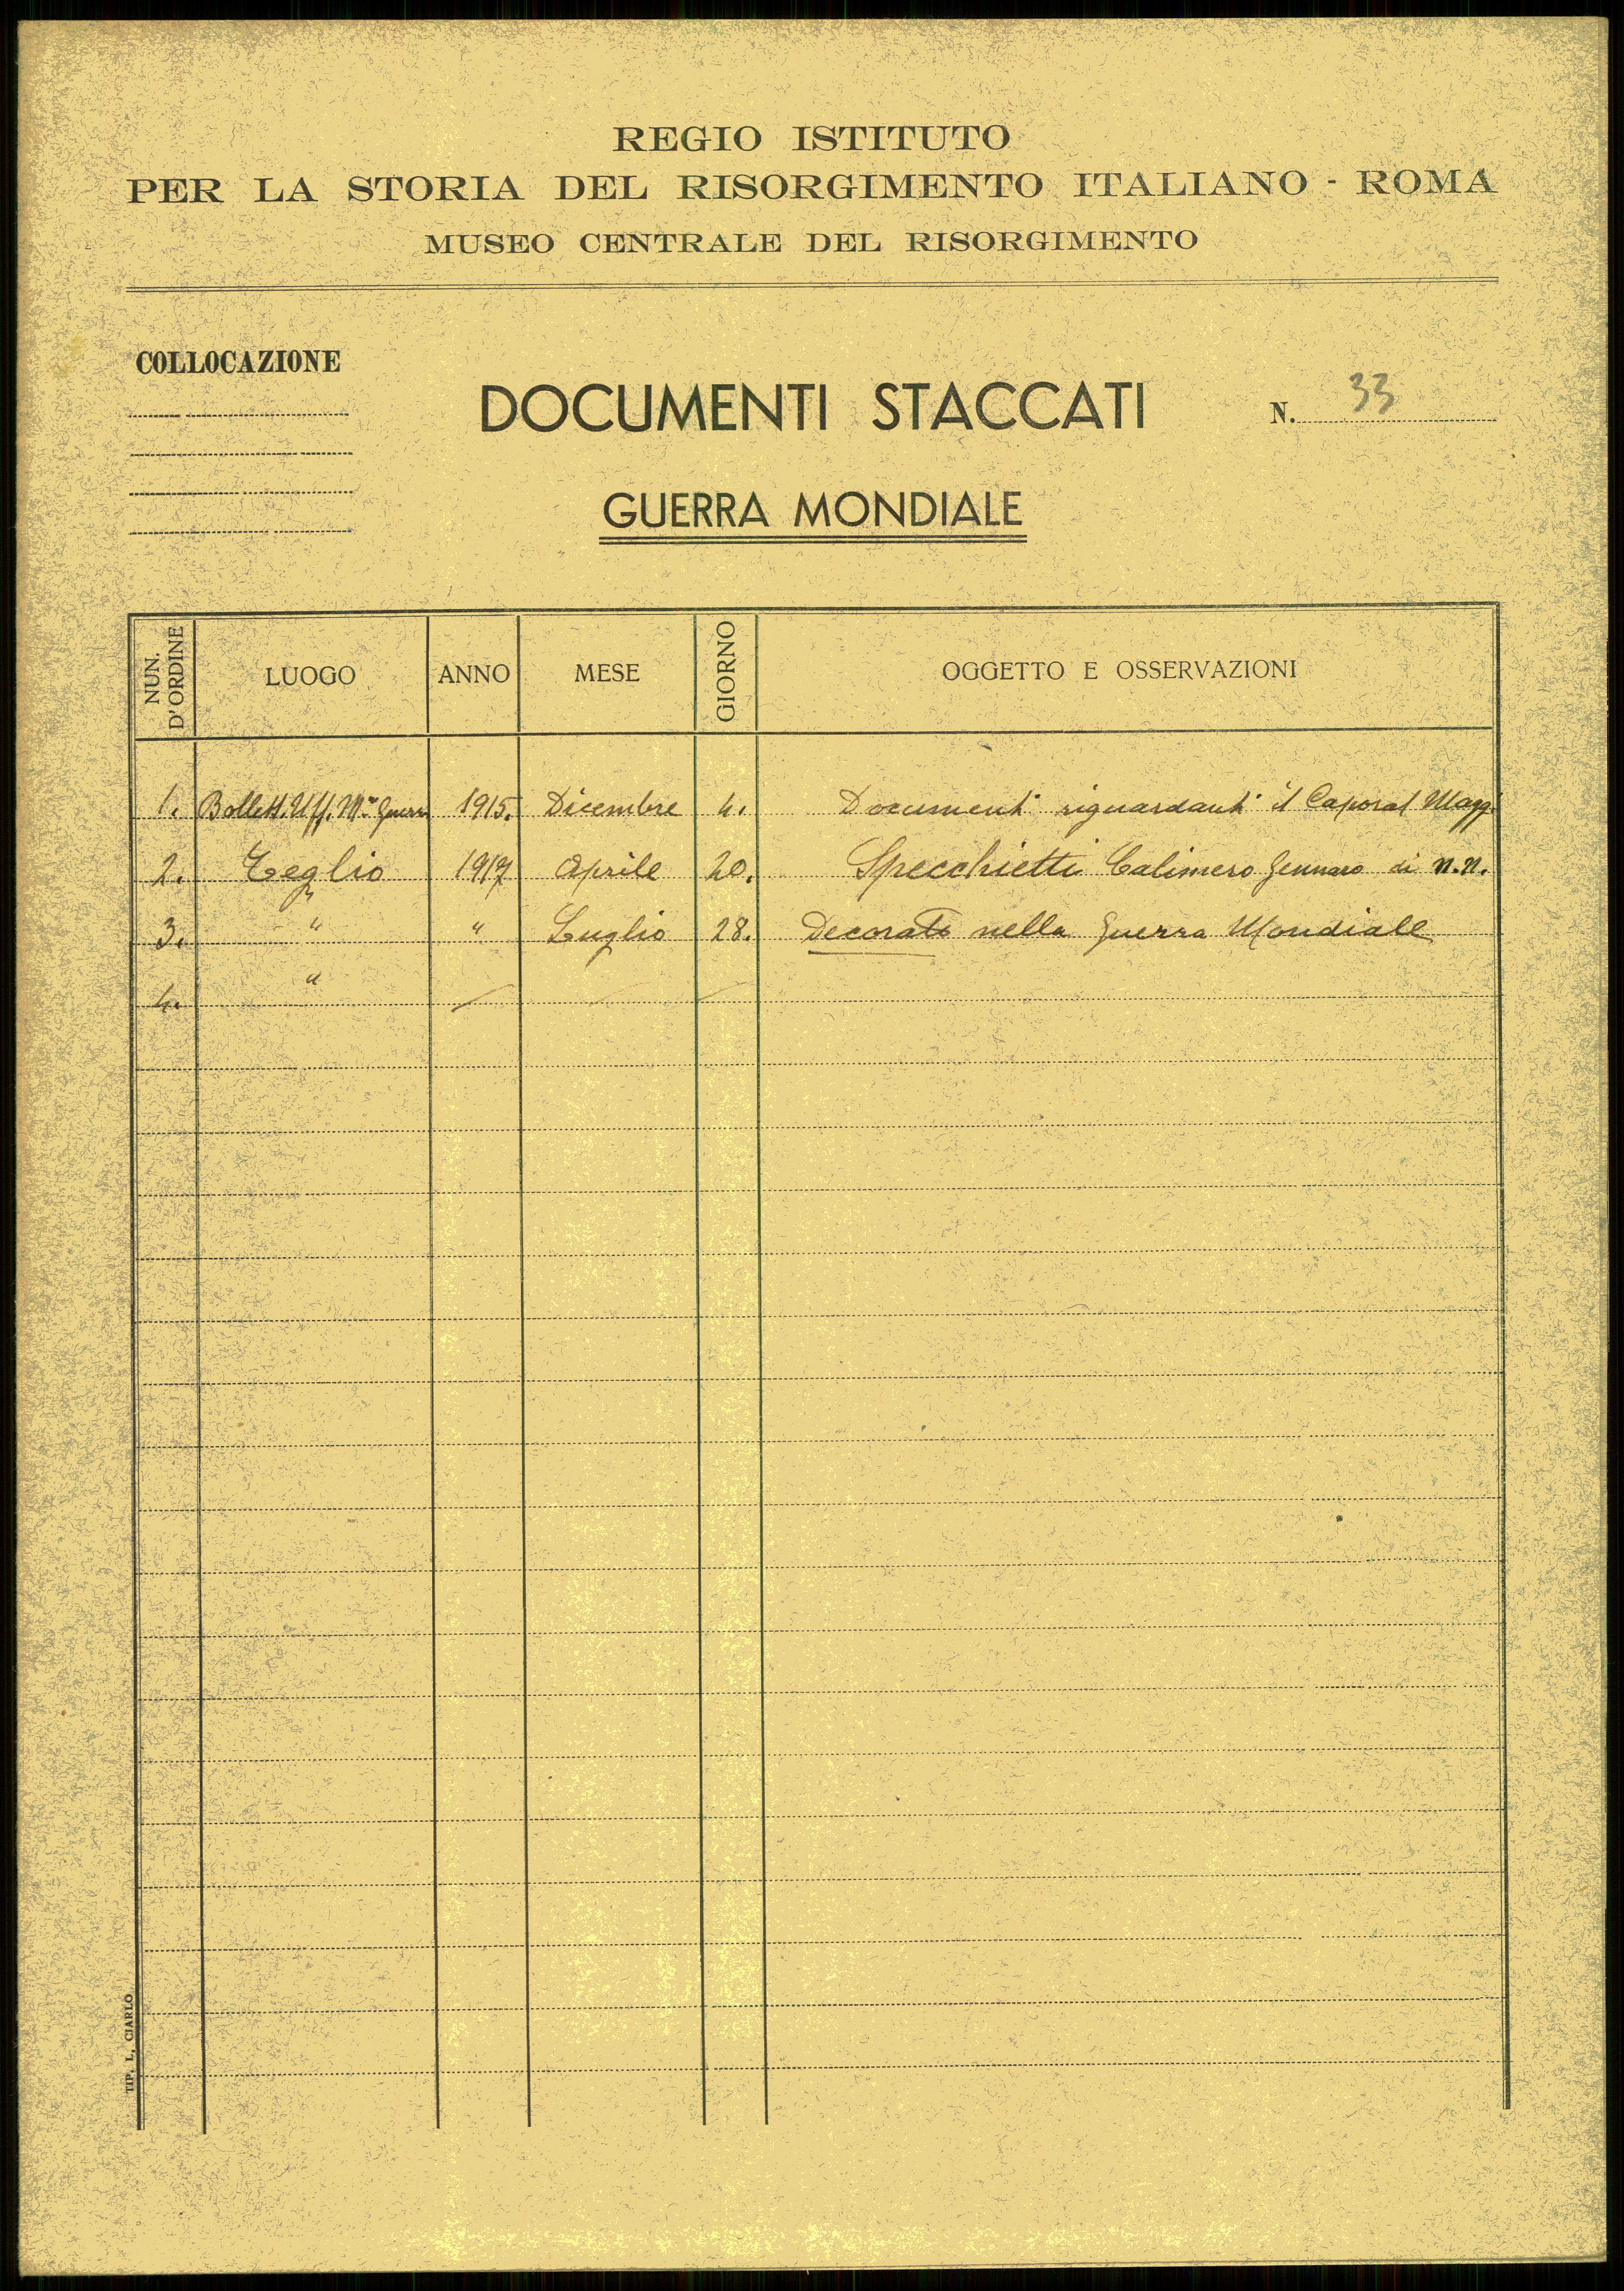 REGIO ISTITUTO
PER LA STORIA DEL RISORGIMENTO ITALIANO - ROMA
MUSEO CENTRALE DEL RISORGIMENTO
COLLOCAZIONE
DOCUMENTI STACCATI
N. 33
GUERRA MONDIALE
NUN. D'ORDINE LUOGO ANNO MESE GIORNO OGGETTO E OSSERVAZIONI
1. Bollett. Uff. Mro Guerra 1915. Dicembre 4. Documenti riguardanti il Caporal Magg.
2. Teglio 1917 Aprile 20. Specchietti Calimero Gennaro di N.N.
3. " " Luglio 28. Decorato nella Guerra Mondiale
4. "
TIP. L. CIARLO